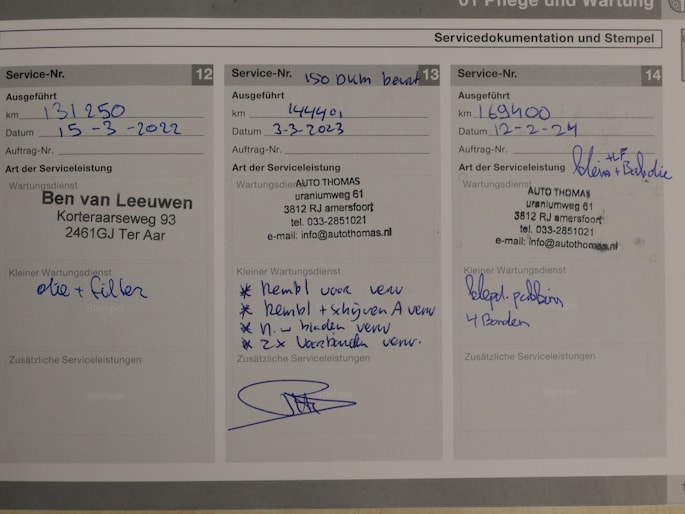 01 Pflege und Wartung
Servicedokumentation und Stempel
Service-Nr. 12
Ausgeführt
km 131250
Datum 15-3-2022
Auftrag-Nr.
Art der Serviceleistung
Wartungsdienst
Ben van Leeuwen
Korteraarseweg 93
2461GJ Ter Aar
Kleiner Wartungsdienst
olie + filter
Stempel
Zusätzliche Serviceleistungen
Stempel
Service-Nr. 150 DKm beurt 13
Ausgeführt
km 144401
Datum 3-3-2023
Auftrag-Nr.
Art der Serviceleistung
Wartungsdienst
AUTO THOMAS
uraniumweg 61
3812 RJ amersfoort
tel. 033-2851021
e-mail: info@autothomas.nl
Kleiner Wartungsdienst
* Rembl voor verv
* Rembl + schijven A verv
* verv
* 2x Voorbanden verv.
Zusätzliche Serviceleistungen
Service-Nr. 14
Ausgeführt
km 169400
Datum 12-2-24
Auftrag-Nr.
Art der Serviceleistung
Wartungsdienst
AUTO THOMAS
uraniumweg 61
3812 RJ amersfoort
tel. 033-2851021
e-mail: info@autothomas.nl
Kleiner Wartungsdienst
4 Banden
Zusätzliche Serviceleistungen
Stempel